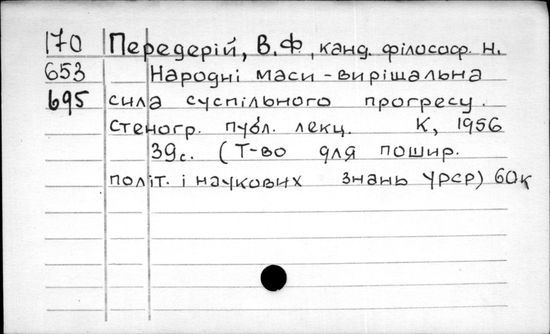 170 Передерій, В.Ф, канд. філософ. н.
653 Народні маси - вирішальна
695 сила суспільного прогресу.
Стеногр. публ. лекц. К, 1956
39с. (Т-во для пошир.
політ. і наукових знань УРСР) 60к